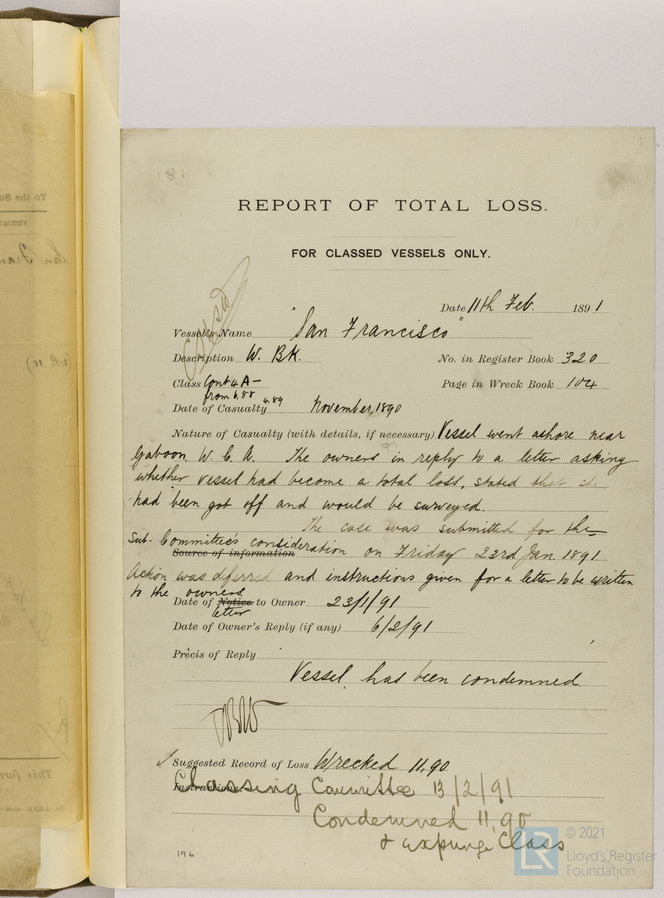 REPORT OF TOTAL LOSS.
FOR CLASSED VESSELS ONLY.
Posted
Date 11th Feb. 1891
Vessel's Name "San Francisco"
Description W. BK. No. in Register Book 320
Class Cont 4 A- Page in Wreck Book 104
from 6,88 4,89
Date of Casualty November, 1890
Nature of Casualty (with details, if necessary) Vessel went ashore near
Gaboon W. C. A. The owners in reply to a letter asking
whether vessel had become a total loss, stated that she
had been got off and would be surveyed.
The case was submitted for the
Sub-Committee's consideration on Friday 23rd Jan. 1891
Source of information
Action was deferred and instructions given for a letter to be written
to the owners
Date of Notice to Owner 23/1/91
letter
Date of Owner's Reply (if any) 6/2/91
Précis of Reply
Vessel has been condemned
Suggested Record of Loss Wrecked 11,90
Instructions
Classing Committee 13/2/91
Condemned 11,90
& expunge Class
196
© 2021
LR
Lloyd's Register
Foundation